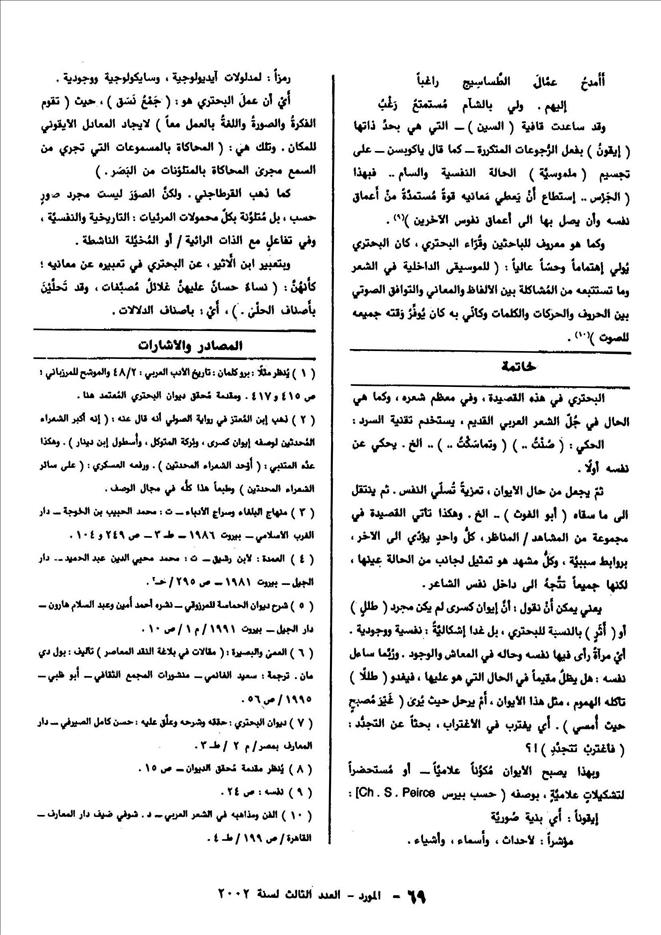 أأمدحُ عمّالَ الطَّساسِيج راغباً
إليهم . ولي بالشآم مُستمتعٌ رَغْبُ
وقد ساعدت قافية ( السين ) ــ التي هي بحدّ ذاتها
( إيقونٌ ) بفعل الرُّجوعات المتكررة ــ كما قال ياكوبسن ــ على
تجسيم ( ملموسيّة ) الحالة النفسية والسام .. فبهذا
( الجَرْس .. إستطاع أنْ يَعطي معانيه قوةً مستمدّةً منْ أعماق
نفسه وأن يصل بها الى أعماق نفوس الآخرين )(٩).
وكما هو معروف للباحثين وقُرّاء البحتري ، كان البحتري
يُولي إهتماماً وحسّاً عالياً : ( للموسيقى الداخلية في الشعر
وما تستتبعه من المُشاكلة بين الالفاظ والمعاني والتوافق الصوتي
بين الحروف والحركات والكلمات وكأنّي به كان يُوفِّرُ وَقته جميعه
للصوت )(١٠).
خاتمة
البحتري في هذه القصيدة ، وفي معظم شعره ، وكما هي
الحال في جُلّ الشعر العربي القديم ، يستخدم تقنية السرد :
الحكي : ( صُنْتُ .. ) ( وتماسَكْتُ .. ) .. الخ . يحكي عن
نفسه أولًا .
ثمّ يجعل من حال الأيوان ، تعزيةً تُسلّي النفس . ثم ينتقل
الى ما سقاه ( أبو الغوث ) .. الخ . وهكذا تأتي القصيدة في
مجموعة من المشاهد / المناظر ، كلُّ واحدٍ يؤدّي الى الآخر ،
بروابط سببيّة ، وكلُّ مشهد هو تمثيل لجانب من الحالة عينها ،
لكنها جميعاً تتّجهُ الى داخل نفس الشاعر .
يعني يمكن أنْ نقول : أنَّ إيوان كسرى لم يكن مجرد ( طللٍ )
أو ( أثرٍ ) بالنسبة للبحتري ، بل غدا إشكاليَّةً : نفسية ووجودية .
أيْ مرآةً رأى فيها نفسه وحاله في المعاش والوجود . ورُبّما ساءل
نفسه : هل يظلُّ مقيماً في الحال التي هو عليها ، فيغدو ( طللًا )
تأكله الهموم ، مثل هذا الأيوان ، أمْ يرحل حيث يُرىٰ ( غَيْرَ مُصبحٍ
حيث أُمسي ) . أي يغترب في الأغتراب ، بحثاً عن التجدُّد :
( فاغتربْ تتجدَّدِ ) !؟
وبهذا يصبح الأيوان مُكوِّناً علاميّاً ــ أو مُستحضراً
لتشكيلاتٍ علاميّةٍ ، بوصفه ( حسب بيرس Ch . S . Peirce] :
إيقوناً : أي بنية صُوريَّة
مؤشراً : لأحداث ، وأسماء ، وأشياء .
رمزاً : لمدلولات آيديولوجية ، وسايكولوجية ووجودية .
أيْ أن عملَ البحتري هو : ( جَمْعُ نَسَق ) ، حيث ( تقوم
الفكرةُ والصورةُ واللغةُ بالعمل معاً ) لايجاد المعادل الأيقوني
للمكان . وتلك هي : ( المحاكاة بالمسموعات التي تجري من
السمع مجرىٰ المحاكاة بالمتلوّنات من البَصَر . )
كما ذهب القرطاجني . ولكنَّ الصوَرَ ليست مجرد صورٍ
حسب ، بل مُتلوِّنة بكلِّ محمولات المرئيات : التاريخية والنفسيَّة ،
وفي تفاعلٍ مع الذات الرائية / أو المُخيَّلة الناشطة .
وبتعبير ابن الأثير ، عن البحتري في تعبيره عن معانيه ؛
كأنهُنَّ : ( نساءً حسانٌ عليهنَّ غلائلُ مصبّغات ، وقد تَحلَّيْنَ
بأصناف الحلْىٰ . ) ، أيْ : بأصناف الدلالات .
المصادر والأشارات
( ١ ) يُنظر مثلًا : بروكلمان : تاريخ الأدب العربي : ٢/٤٨ والموشح للمرزباني ؛
ص ٤١٥ و ٤١٧ . ومقدمة مُحقق ديوان البحتري المُعتمد هنا .
( ٢ ) ذهب إبن المُعتز في رواية الصولي أنه قال عنه : ( إنه أكبر الشعراء
المُحدثين لوصفه إيوان كسرى ، وبُركة المتوكل ، وأسطول إبن دينار ) . وهكذا
عدّه المتنبي : ( أوحد الشعراء المحدثين ) . ورفعه العسكري : ( على سائر
الشعراء المحدثين ) وطبعاً هذا كلُّه في مجال الوصف .
( ٣ ) منهاج البلغاء وسراج الأدباء ــ ت : محمد الحبيب بن الخوجة ــ دار
الغرب الأسلامي ــ بيروت ١٩٨٦ ــ طـ ٣ ــ ص ٢٤٩ و ١٠٤ .
( ٤ ) العمدة : لأبن رشيق ــ ت : محمد محيي الدين عبد الحميد ــ دار
الجيل ــ بيروت ١٩٨١ ــ ص ٢٩٥ / حـ٢ .
( ٥ ) شرح ديوان الحماسة للمرزوقي ــ نشره أحمد أمين وعبد السلام هارون ــ
دار الجيل ــ بيروت ١٩٩١ / م ١ / ص ١٠ .
( ٦ ) العمى والبصيرة : ( مقالات في بلاغة النقد المعاصر ) تأليف : بول دي
مان . ترجمة : سعيد الغانمي ــ منشورات المجمع الثقافي ــ أبو ظبي ــ
١٩٩٥ / ص ٥٦ .
( ٧ ) ديوان البحتري : حققه وشرحه وعلّق عليه : حسن كامل الصيرفي ــ دار
المعارف بمصر / م ٢ / طـ ٣ .
( ٨ ) يُنظر مقدمة مُحقق الديوان ــ ص ١٥ .
( ٩ ) نفسه : ص ٢٤ .
( ١٠ ) الفن ومذاهبه في الشعر العربي ــ د . شوقي ضيف دار المعارف ــ
القاهرة / ص ١٩٩ / طـ ٤ .
٦٩ - المورد - العدد الثالث لسنة ٢٠٠٢